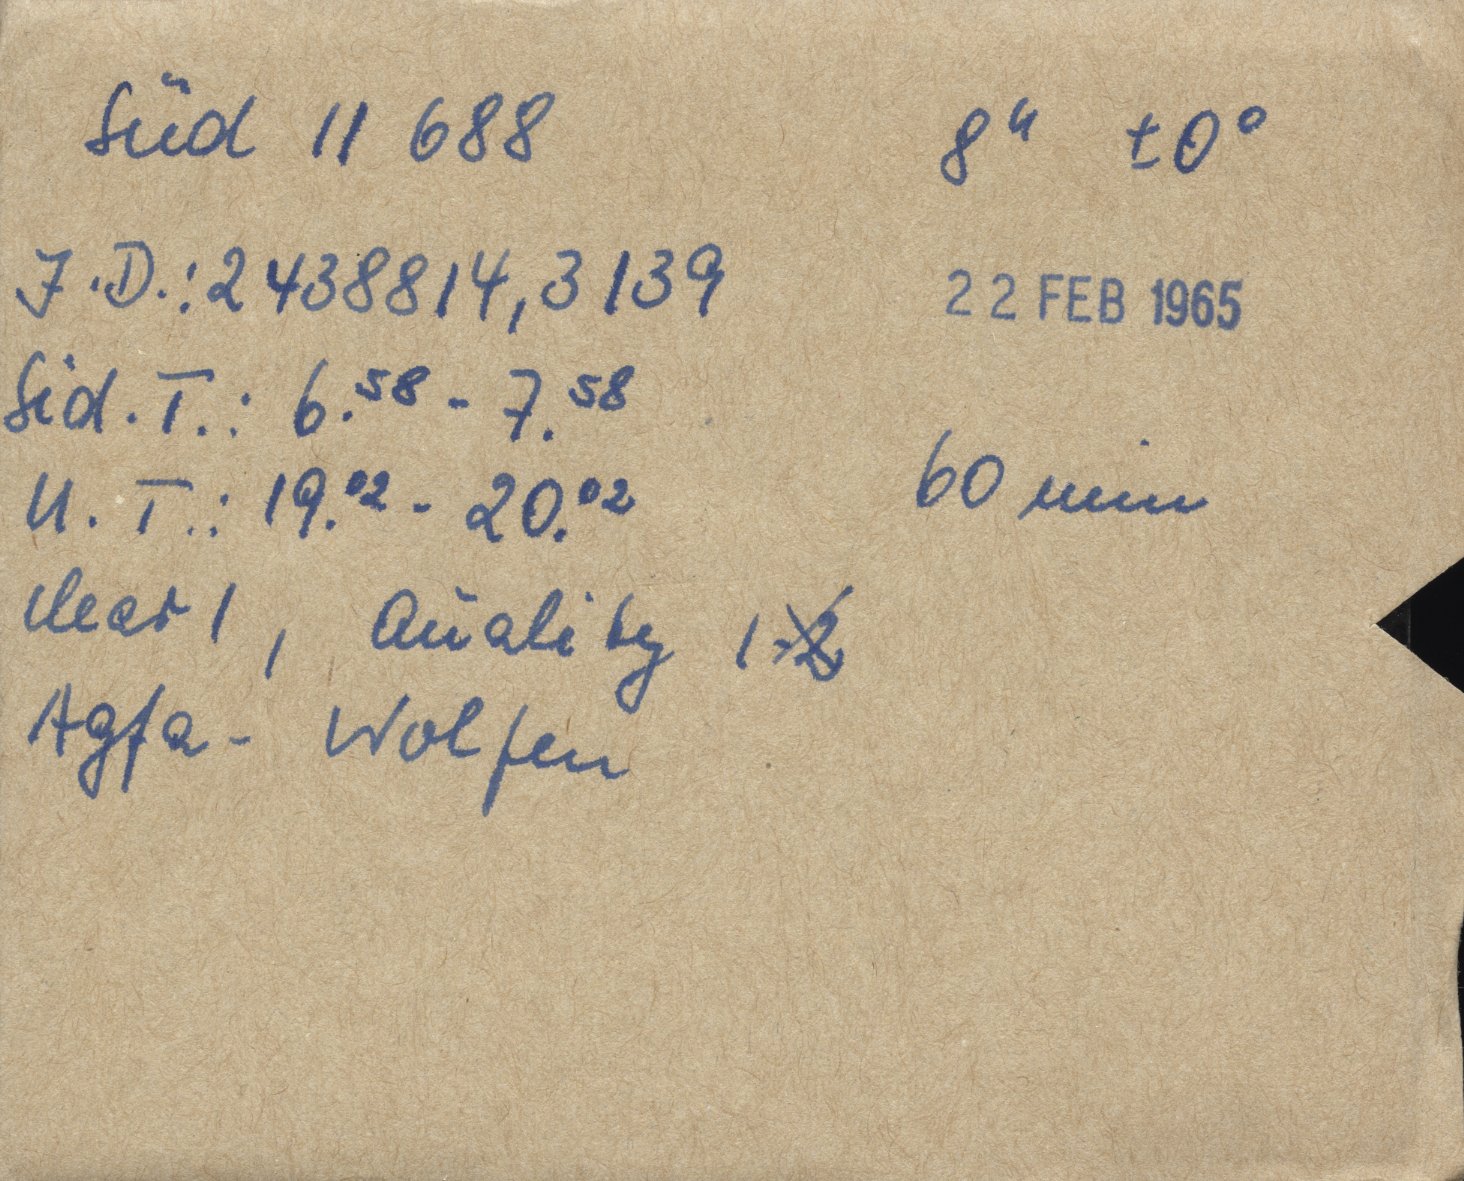 Süd 11 688 8ʰ ±0°
J.D.: 2438814,3139 22 FEB 1965
Sid. T.: 6.⁵⁸ - 7.⁵⁸
U. T.: 19.⁰² - 20.⁰² 60 min
clear 1, Quality 1
Agfa - Wolfen